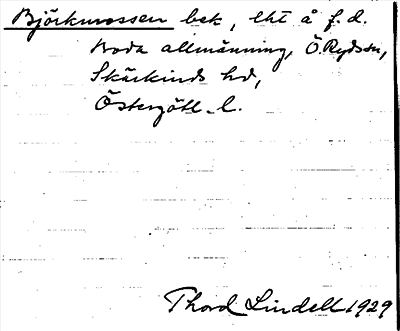 Björkmossen bek, lht å f.d.
Boda allmänning, Ö. Ryds sn,
Skärkinds hd,
Östergötl. l.
Thord Lindell 1929